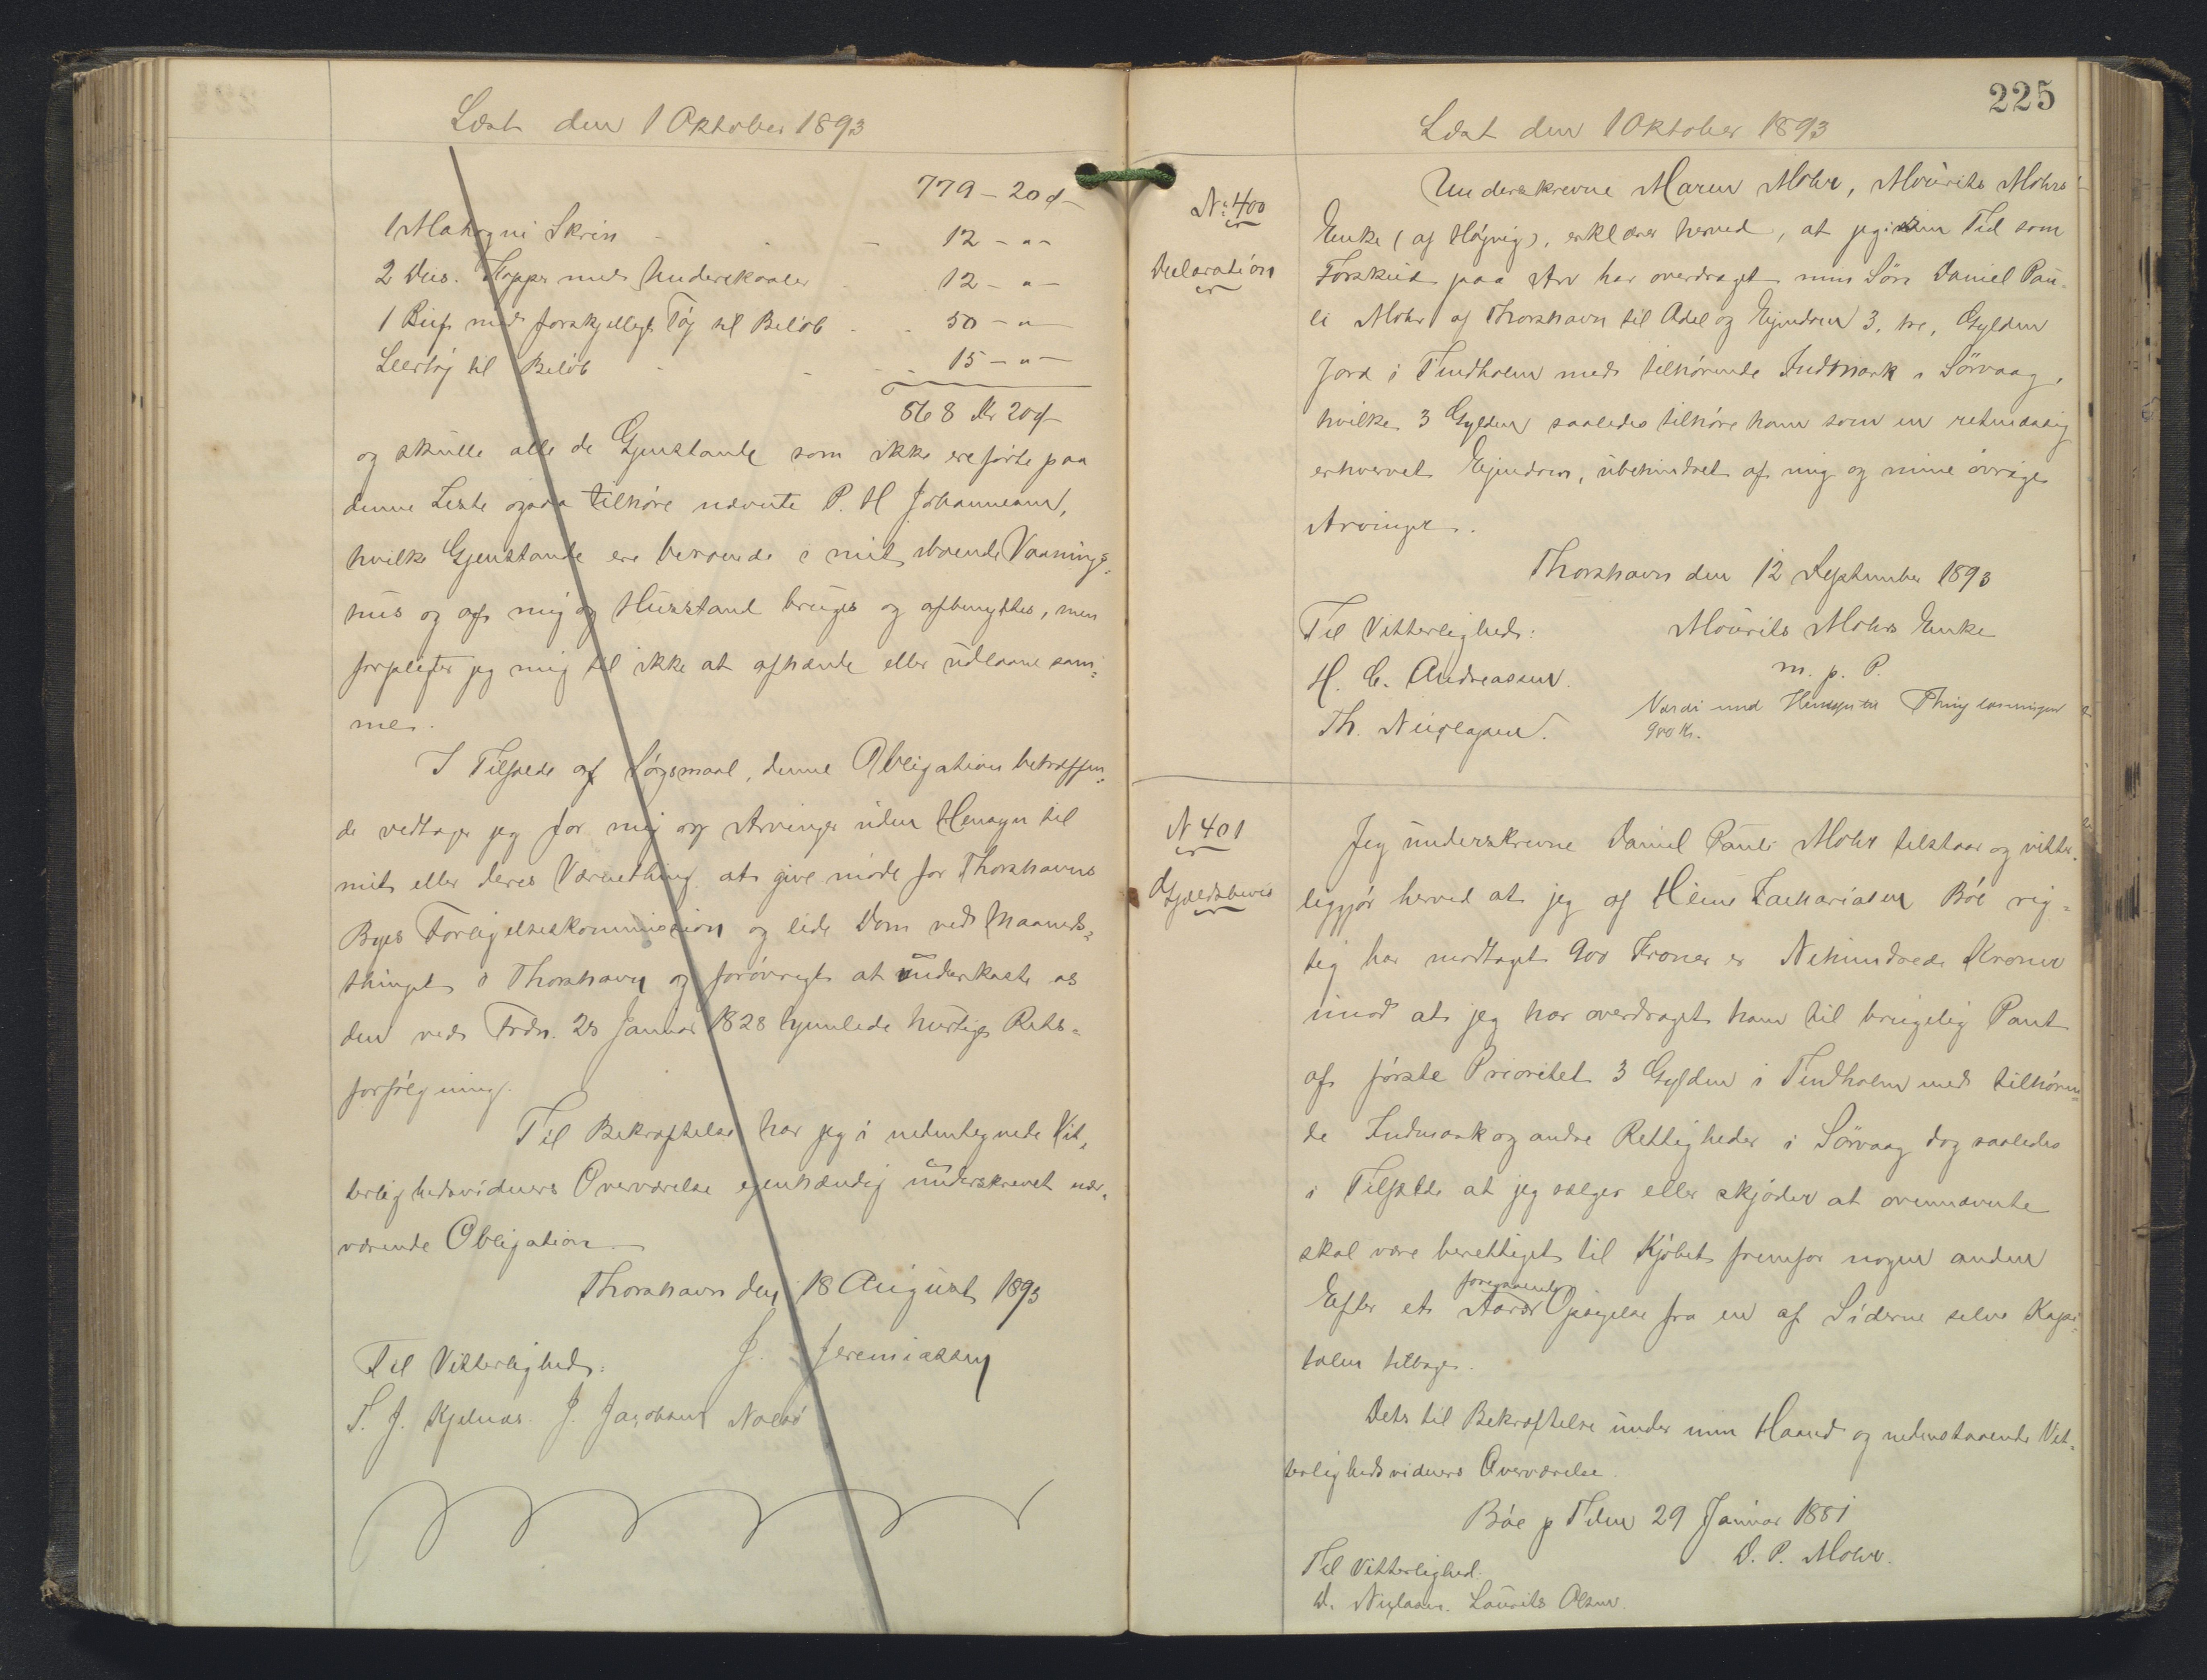 Læst den 1 Oktober 1893
779 - 20 ₰
1 Mahogni Skrin - 12 - " -
2 Dus. Kopper med Underskaaler - 12 - " -
1 Buf. med forskjelligt Tøj til Beløb - 50 - " -
Leertøj til Beløb - 15 - " -
868 Kr 20 ₰
og skulle alle de Gjenstande som ikke ere førte paa
denne Liste ogsaa tilhøre nævnte P. H Johannesen,
hvilke Gjenstande ere beroende i mit iboende Vaanings=
hus og af mig og Husstand bruges og afbenyttes, men
forpligter jeg mig til ikke at afhænde eller udlaane sam=
me.
I Tilfælde af Søgsmaal, denne Obligation betræffen=
de vedtager jeg for mig og Arvinger uden Hensyn til
mit eller deres Værnething at give møde for Thorshavns
Byes Forligelseskommission og lide Dom ved Maaneds=
thinget i Thorshavn og forøvrigt at underkaste os
den ved Frdn. 25 Januar 1828 hjemlede hurtige Rets=
forfølgning.
Til Bekræftelse har jeg i nedentegnede Vit=
terlighedsvidners Overværelse egenhændig underskrevet nær=
værende Obligation.
Thorshavn den 18 August 1893
Til Vitterlighed: J. Jeremiassen
T. J. Kjelnæs. J. Jacobsen Nolsø
225
Læst den 1 Oktober 1893
No 400
Declaration
Underskrevne Maren Mohr, Mourits Mohrs
Enke (af Højvig), erklærer herved, at jeg i sin Tid som
Forskud paa Arv har overdraget min Søn Daniel Pau=
li Mohr af Thorshavn til Odel og Ejendom 3, tre, Gylden
Jord i Tindholm med tilhørende Indmark i Sörvaag,
hvilke 3 Gylden saaledes tilhøre ham som en retmæssig
erhvervet Ejendom, ubehindret af mig og mine øvrige
Arvinger.
Thorshavn den 12 September 1893
Til Vitterlighed: Mourits Mohrs Enke
H. C. Andreassen. m. p. P.
Th. Niclasen. Værdi med Hensyn til Thinglæsningen
900 Kr.
N 401
Gjældsbevis
Jeg underskrevne Daniel Pauli Mohr tilstaar og vitter=
liggjør herved at jeg af Heine Zachariasen Bøe rig=
tig har modtaget 900 Kroner er Nihundrede Kroner
imod at jeg har overdraget ham til brugelig Pant
af første Prioritet 3 Gylden i Tindholm med tilhøren=
de Indmark og andre Rettigheder i Sörvaag dog saaledes
i Tilfælde at jeg sælger eller skjøder at ovennævnte
skal være berettiget til Kjøbet fremfor nogen anden
Efter et Aars foregaaende Opsigelse fra en af Siderne selve Kapi=
talen tilbage.
Dets til Bekræftelse under min Haand og nedenstaaende Vit=
terlighedsvidners Overværelse.
Bøe p Tiden 29 Januar 1881
Til Vitterlighed. D. P. Mohr.
D. Niclasen. Laurits Olsen.